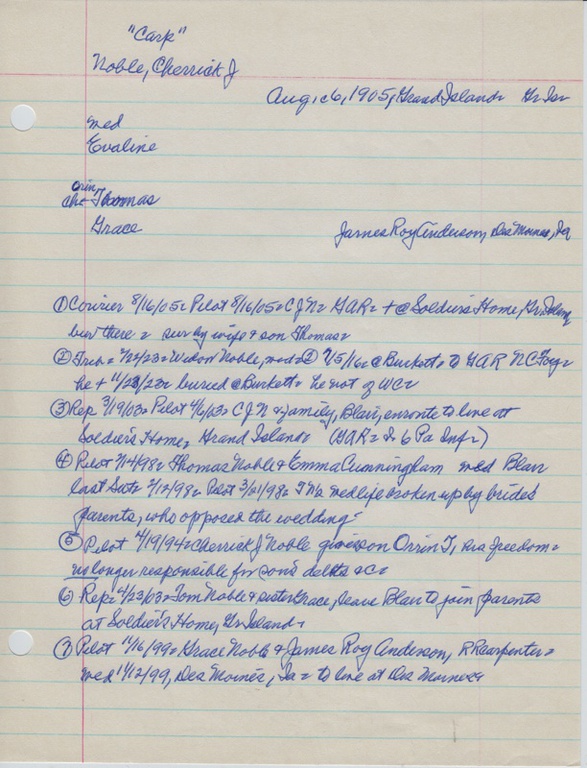 "Carp"
Noble, Cherrick J
Aug, 6, 1905, Grand Island Gr Isr
med
Evaline
Orin
Ch- Thomas
Grace
James Roy Anderson, Des Moines, Ia
① Courier 8/16/05 = Pilot 8/16/05 = C J N = GAR = + @ Soldier's Home, Gr Island
bur there = sur by wife + son Thomas =
② Trib = Widow Noble, med = @ Burkett = to GAR
he + 11/23/23 = buried @ Burkett = he not of WC =
③ Rep 3/19/03 = Pilot = C J N + family, Blair, enroute to live at
Soldier's Home, Grand Island = (GAR = Pa Inf =)
④ Pilot 2/14/98 = Thomas Noble + Emma Cunningham med Blair
last Sat = 2/12/98 = Pilot 3/21/98 = med life broken up by brides
parents, who opposed the wedding =
⑤ Pilot 4/19/94 = Cherrick J Noble gives son Orrin T, his freedom =
no longer responsible for son's debts &c =
⑥ Rep = 4/23/03 = Tom Noble + sister Grace, leave Blair to join parents
at Soldier's Home, Gr Island =
⑦ Pilot 11/16/99 = Grace Noble + James Roy Anderson, RR carpenter =
med 11/12/99, Des Moines, Ia = to live at Des Moines =